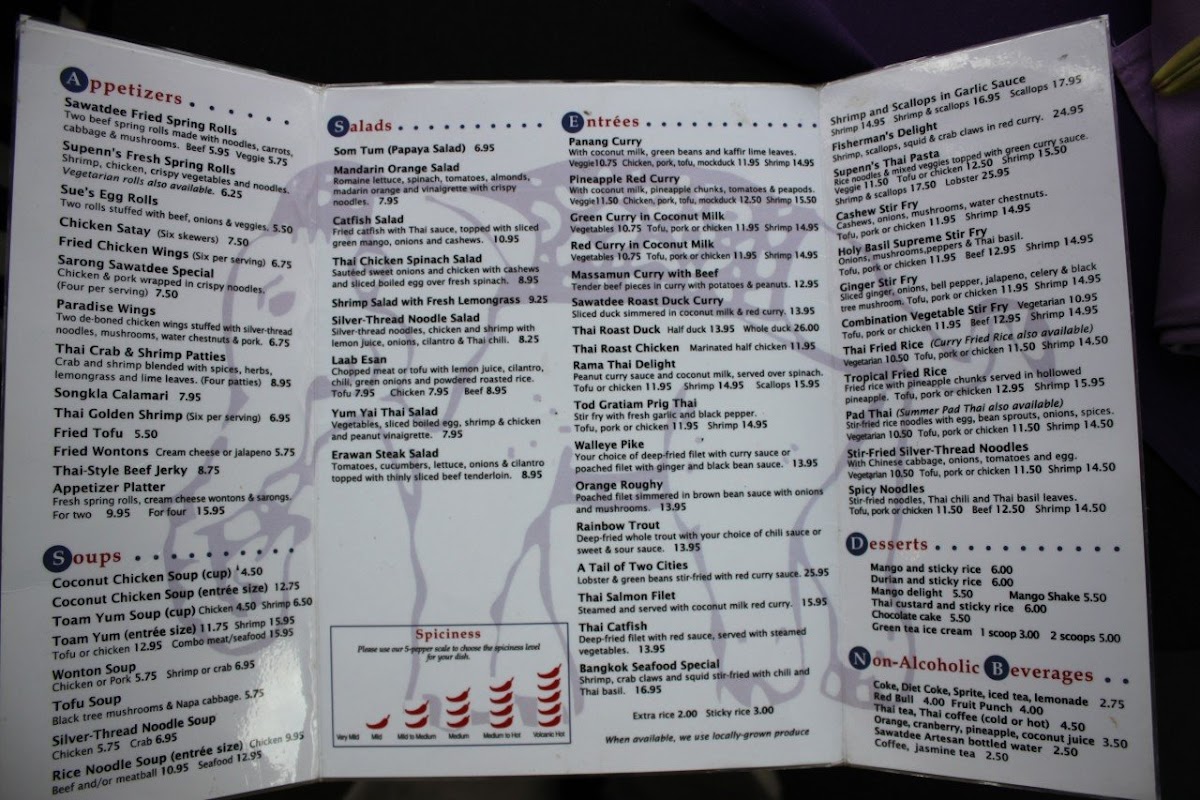 Appetizers
Sawatdee Fried Spring Rolls
Two beef spring rolls made with noodles, carrots,
cabbage & mushrooms. Beef 5.95 Veggie 5.75
Supenn's Fresh Spring Rolls
Shrimp, chicken, crispy vegetables and noodles.
Vegetarian rolls also available. 6.25
Sue's Egg Rolls
Two rolls stuffed with beef, onions & veggies. 5.50
Chicken Satay (Six skewers) 7.50
Fried Chicken Wings (Six per serving) 6.75
Sarong Sawatdee Special
Chicken & pork wrapped in crispy noodles.
(Four per serving) 7.50
Paradise Wings
Two de-boned chicken wings stuffed with silver-thread
noodles, mushrooms, water chestnuts & pork. 6.75
Thai Crab & Shrimp Patties
Crab and shrimp blended with spices, herbs,
lemongrass and lime leaves. (Four patties) 8.95
Songkla Calamari 7.95
Thai Golden Shrimp (Six per serving) 6.95
Fried Tofu 5.50
Fried Wontons Cream cheese or jalapeno 5.75
Thai-Style Beef Jerky 8.75
Appetizer Platter
Fresh spring rolls, cream cheese wontons & sarongs.
For two 9.95 For four 15.95
Soups
Coconut Chicken Soup (cup) 4.50
Coconut Chicken Soup (entrée size) 12.75
Toam Yum Soup (cup) Chicken 4.50 Shrimp 6.50
Toam Yum (entrée size) 11.75 Shrimp 15.95
Tofu or chicken 12.95 Combo meat/seafood 15.95
Wonton Soup
Chicken or Pork 5.75 Shrimp or crab 6.95
Tofu Soup
Black tree mushrooms & Napa cabbage. 5.75
Silver-Thread Noodle Soup
Chicken 5.75 Crab 6.95
Rice Noodle Soup (entrée size) Chicken 9.95
Beef and/or meatball 10.95 Seafood 12.95
Salads
Som Tum (Papaya Salad) 6.95
Mandarin Orange Salad
Romaine lettuce, spinach, tomatoes, almonds,
madarin orange and vinaigrette with crispy
noodles. 7.95
Catfish Salad
Fried catfish with Thai sauce, topped with sliced
green mango, onions and cashews. 10.95
Thai Chicken Spinach Salad
Sautéed sweet onions and chicken with cashews
and sliced boiled egg over fresh spinach. 8.95
Shrimp Salad with Fresh Lemongrass 9.25
Silver-Thread Noodle Salad
Silver-thread noodles, chicken and shrimp with
lemon juice, onions, cilantro & Thai chili. 8.25
Laab Esan
Chopped meat or tofu with lemon juice, cilantro,
chili, green onions and powdered roasted rice.
Tofu 7.95 Chicken 7.95 Beef 8.95
Yum Yai Thai Salad
Vegetables, sliced boiled egg, shrimp & chicken
and peanut vinaigrette. 7.95
Erawan Steak Salad
Tomatoes, cucumbers, lettuce, onions & cilantro
topped with thinly sliced beef tenderloin. 8.95
Spiciness
Please use our 5-pepper scale to choose the spiciness level
for your dish.
Very Mild Mild Mild to Medium Medium Medium to Hot Volcanic Hot
Entrées
Panang Curry
With coconut milk, green beans and kaffir lime leaves.
Veggie 10.75 Chicken, pork, tofu, mockduck 11.95 Shrimp 14.95
Pineapple Red Curry
With coconut milk, pineapple chunks, tomatoes & peapods.
Veggie 11.50 Chicken, pork, tofu, mockduck 12.50 Shrimp 15.50
Green Curry in Coconut Milk
Vegetables 10.75 Tofu, pork or chicken 11.95 Shrimp 14.95
Red Curry in Coconut Milk
Vegetables 10.75 Tofu, pork or chicken 11.95 Shrimp 14.95
Massamun Curry with Beef
Tender beef pieces in curry with potatoes & peanuts. 12.95
Sawatdee Roast Duck Curry
Sliced duck simmered in coconut milk & red curry. 13.95
Thai Roast Duck Half duck 13.95 Whole duck 26.00
Thai Roast Chicken Marinated half chicken 11.95
Rama Thai Delight
Peanut curry sauce and coconut milk, served over spinach.
Tofu or chicken 11.95 Shrimp 14.95 Scallops 15.95
Tod Gratiam Prig Thai
Stir fry with fresh garlic and black pepper.
Tofu, pork or chicken 11.95 Shrimp 14.95
Walleye Pike
Your choice of deep-fried filet with curry sauce or
poached filet with ginger and black bean sauce. 13.95
Orange Roughy
Poached filet simmered in brown bean sauce with onions
and mushrooms. 13.95
Rainbow Trout
Deep-fried whole trout with your choice of chili sauce or
sweet & sour sauce. 13.95
A Tail of Two Cities
Lobster & green beans stir-fried with red curry sauce. 25.95
Thai Salmon Filet
Steamed and served with coconut milk red curry. 15.95
Thai Catfish
Deep-fried filet with red sauce, served with steamed
vegetables. 13.95
Bangkok Seafood Special
Shrimp, crab claws and squid stir-fried with chili and
Thai basil. 16.95
Extra rice 2.00 Sticky rice 3.00
When available, we use locally-grown produce
Shrimp and Scallops in Garlic Sauce
Shrimp 14.95 Shrimp & scallops 16.95 Scallops 17.95
Fisherman's Delight
Shrimp, scallops, squid & crab claws in red curry. 24.95
Supenn's Thai Pasta
Rice noodles & mixed veggies topped with green curry sauce.
Veggie 11.50 Tofu or chicken 12.50 Shrimp 15.50
Shrimp & scallops 17.50 Lobster 25.95
Cashew Stir Fry
Cashews, onions, mushrooms, water chestnuts.
Tofu, pork or chicken 11.95 Shrimp 14.95
Holy Basil Supreme Stir Fry
Onions, mushrooms,peppers & Thai basil.
Tofu, pork or chicken 11.95 Beef 12.95 Shrimp 14.95
Ginger Stir Fry
Sliced ginger, onions, bell pepper, jalapeno, celery & black
tree mushroom. Tofu, pork or chicken 11.95 Shrimp 14.95
Combination Vegetable Stir Fry Vegetarian 10.95
Tofu, pork or chicken 11.95 Beef 12.95 Shrimp 14.95
Thai Fried Rice (Curry Fried Rice also available)
Vegetarian 10.50 Tofu, pork or chicken 11.50 Shrimp 14.50
Tropical Fried Rice
Fried rice with pineapple chunks served in hollowed
pineapple. Tofu, pork or chicken 12.95 Shrimp 15.95
Pad Thai (Summer Pad Thai also available)
Stir-fried rice noodles with egg, bean sprouts, onions, spices.
Vegetarian 10.50 Tofu, pork or chicken 11.50 Shrimp 14.50
Stir-Fried Silver-Thread Noodles
With Chinese cabbage, onions, tomatoes and egg.
Vegetarian 10.50 Tofu, pork or chicken 11.50 Shrimp 14.50
Spicy Noodles
Stir-fried noodles, Thai chili and Thai basil leaves.
Tofu, pork or chicken 11.50 Beef 12.50 Shrimp 14.50
Desserts
Mango and sticky rice 6.00
Durian and sticky rice 6.00
Mango delight 5.50 Mango Shake 5.50
Thai custard and sticky rice 6.00
Chocolate cake 5.50
Green tea ice cream 1 scoop 3.00 2 scoops 5.00
Non-Alcoholic Beverages
Coke, Diet Coke, Sprite, iced tea, lemonade 2.75
Red Bull 4.00 Fruit Punch 4.00
Thai tea, Thai coffee (cold or hot) 4.50
Orange, cranberry, pineapple, coconut juice 3.50
Sawatdee Artesan bottled water 2.50
Coffee, jasmine tea 2.50